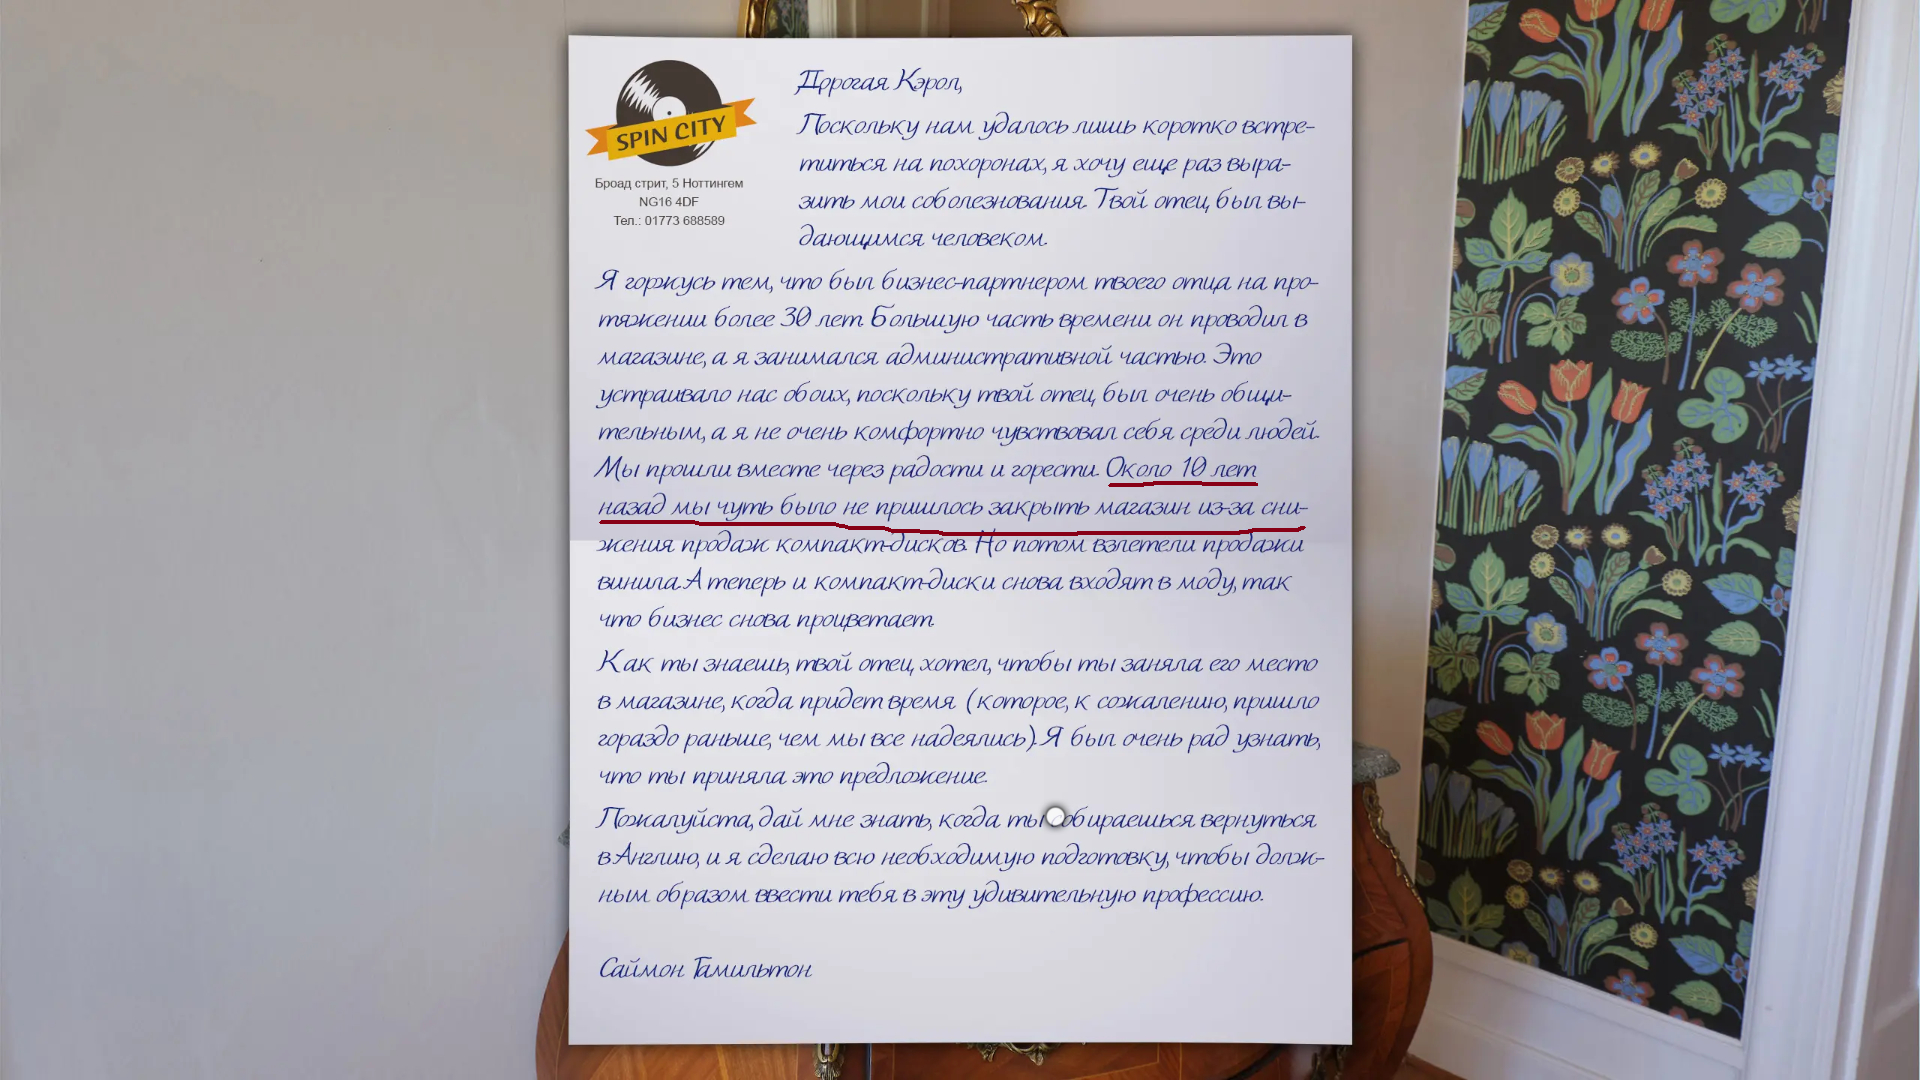 SPIN CITY
Броад стрит, 5 Ноттингем
NG16 4DF
Тел.: 01773 688589
Дорогая Кэрол,
Поскольку нам удалось лишь коротко встре-
титься на похоронах, я хочу еще раз выра-
зить мои соболезнования. Твой отец был вы-
дающимся человеком.
Я горжусь тем, что был бизнес-партнером твоего отца на про-
тяжении более 30 лет. Большую часть времени он проводил в
магазине, а я занимался административной частью. Это
устраивало нас обоих, поскольку твой отец был очень общи-
тельным, а я не очень комфортно чувствовал себя среди людей.
Мы прошли вместе через радости и горести. Около 10 лет
назад мы чуть было не пришлось закрыть магазин из-за сни-
жения продаж компакт-дисков. Но потом взлетели продажи
винила. А теперь и компакт-диски снова входят в моду, так
что бизнес снова процветает.
Как ты знаешь, твой отец хотел, чтобы ты заняла его место
в магазине, когда придет время (которое, к сожалению, пришло
гораздо раньше, чем мы все надеялись). Я был очень рад узнать,
что ты приняла это предложение.
Пожалуйста, дай мне знать, когда ты собираешься вернуться
в Англию, и я сделаю всю необходимую подготовку, чтобы долж-
ным образом ввести тебя в эту удивительную профессию.
Саймон Гамильтон